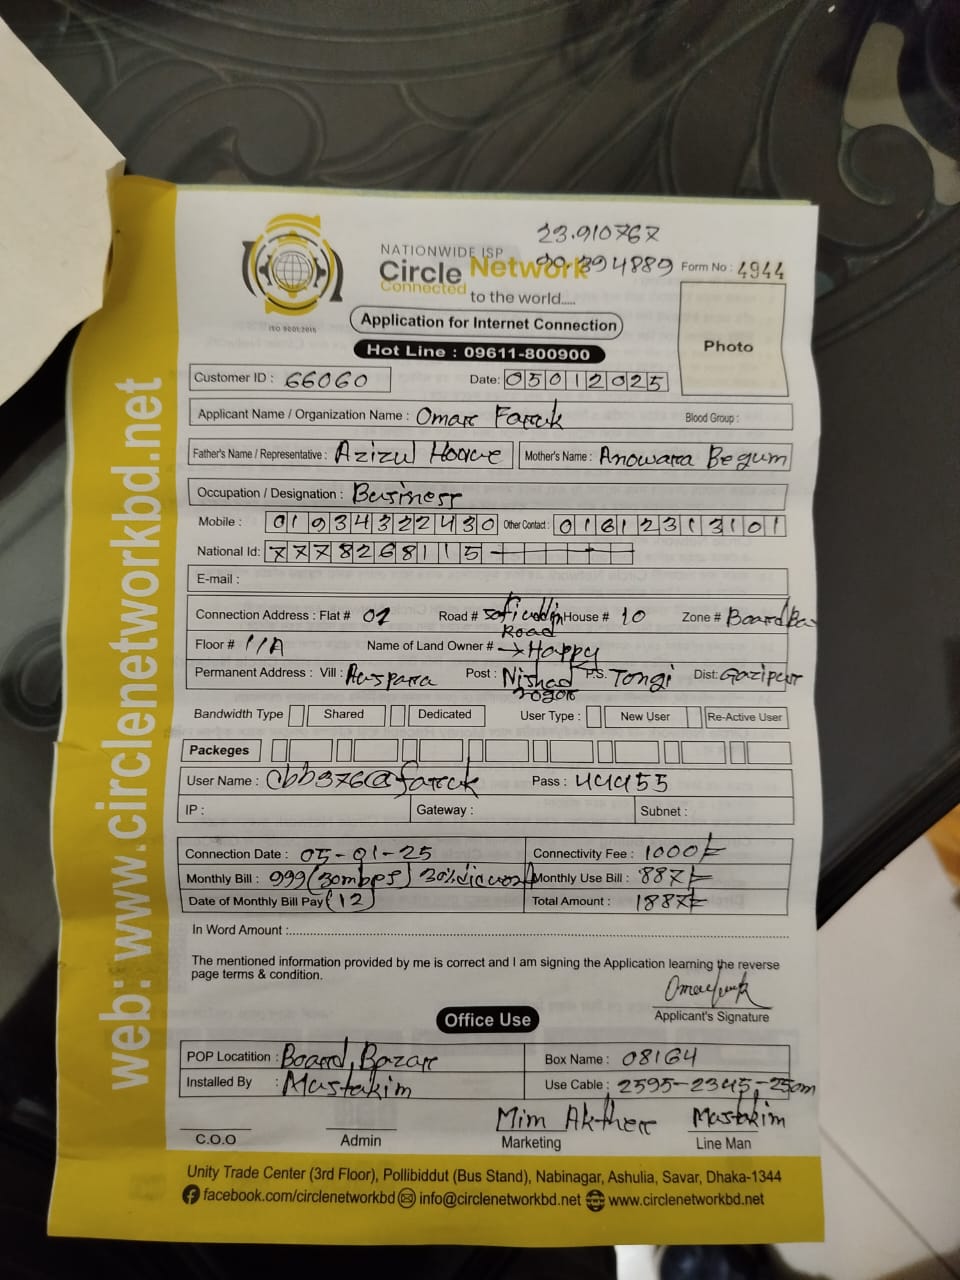 23.910767
NATIONWIDE ISP
90.394889
Form No : 4944
Circle Network
Connected to the world.....
ISO 9001:2015
Application for Internet Connection
Photo
Hot Line : 09611-800900
Customer ID : 66060
Date: 05012025
Applicant Name / Organization Name : Omar Faruk
Blood Group :
Father's Name / Representative : Azizul Hoque
Mother's Name : Anowara Begum
Occupation / Designation : Business
Mobile : 01934322430
Other Contact : 01612313101
National Id: 7778268115
E-mail :
Connection Address : Flat # 02 Road # Safiuddin Road House # 10 Zone # Board Ba
Floor # 11/A Name of Land Owner # → Happy
Permanent Address : Vill : Auspara Post : Nishad nogor P.S. Tongi Dist: Gazipur
Bandwidth Type Shared Dedicated User Type : New User Re-Active User
Packeges
User Name : cbb376@faruk Pass : 44455
IP : Gateway : Subnet :
Connection Date : 05-01-25 Connectivity Fee : 1000/=
Monthly Bill : 999 (30mbps) 30% Monthly Use Bill : 887/=
Date of Monthly Bill Pay (12) Total Amount : 1887/=
In Word Amount :
The mentioned information provided by me is correct and I am signing the Application learning the reverse
page terms & condition.
Applicant's Signature
Office Use
POP Locatition : Board Bazar Box Name : 08164
Installed By : Mustakim Use Cable : 2595-2345,-250m
Mim Akther Mustakim
C.O.O Admin Marketing Line Man
Unity Trade Center (3rd Floor), Pollibiddut (Bus Stand), Nabinagar, Ashulia, Savar, Dhaka-1344
facebook.com/circlenetworkbd info@circlenetworkbd.net www.circlenetworkbd.net
web: www.circlenetworkbd.net